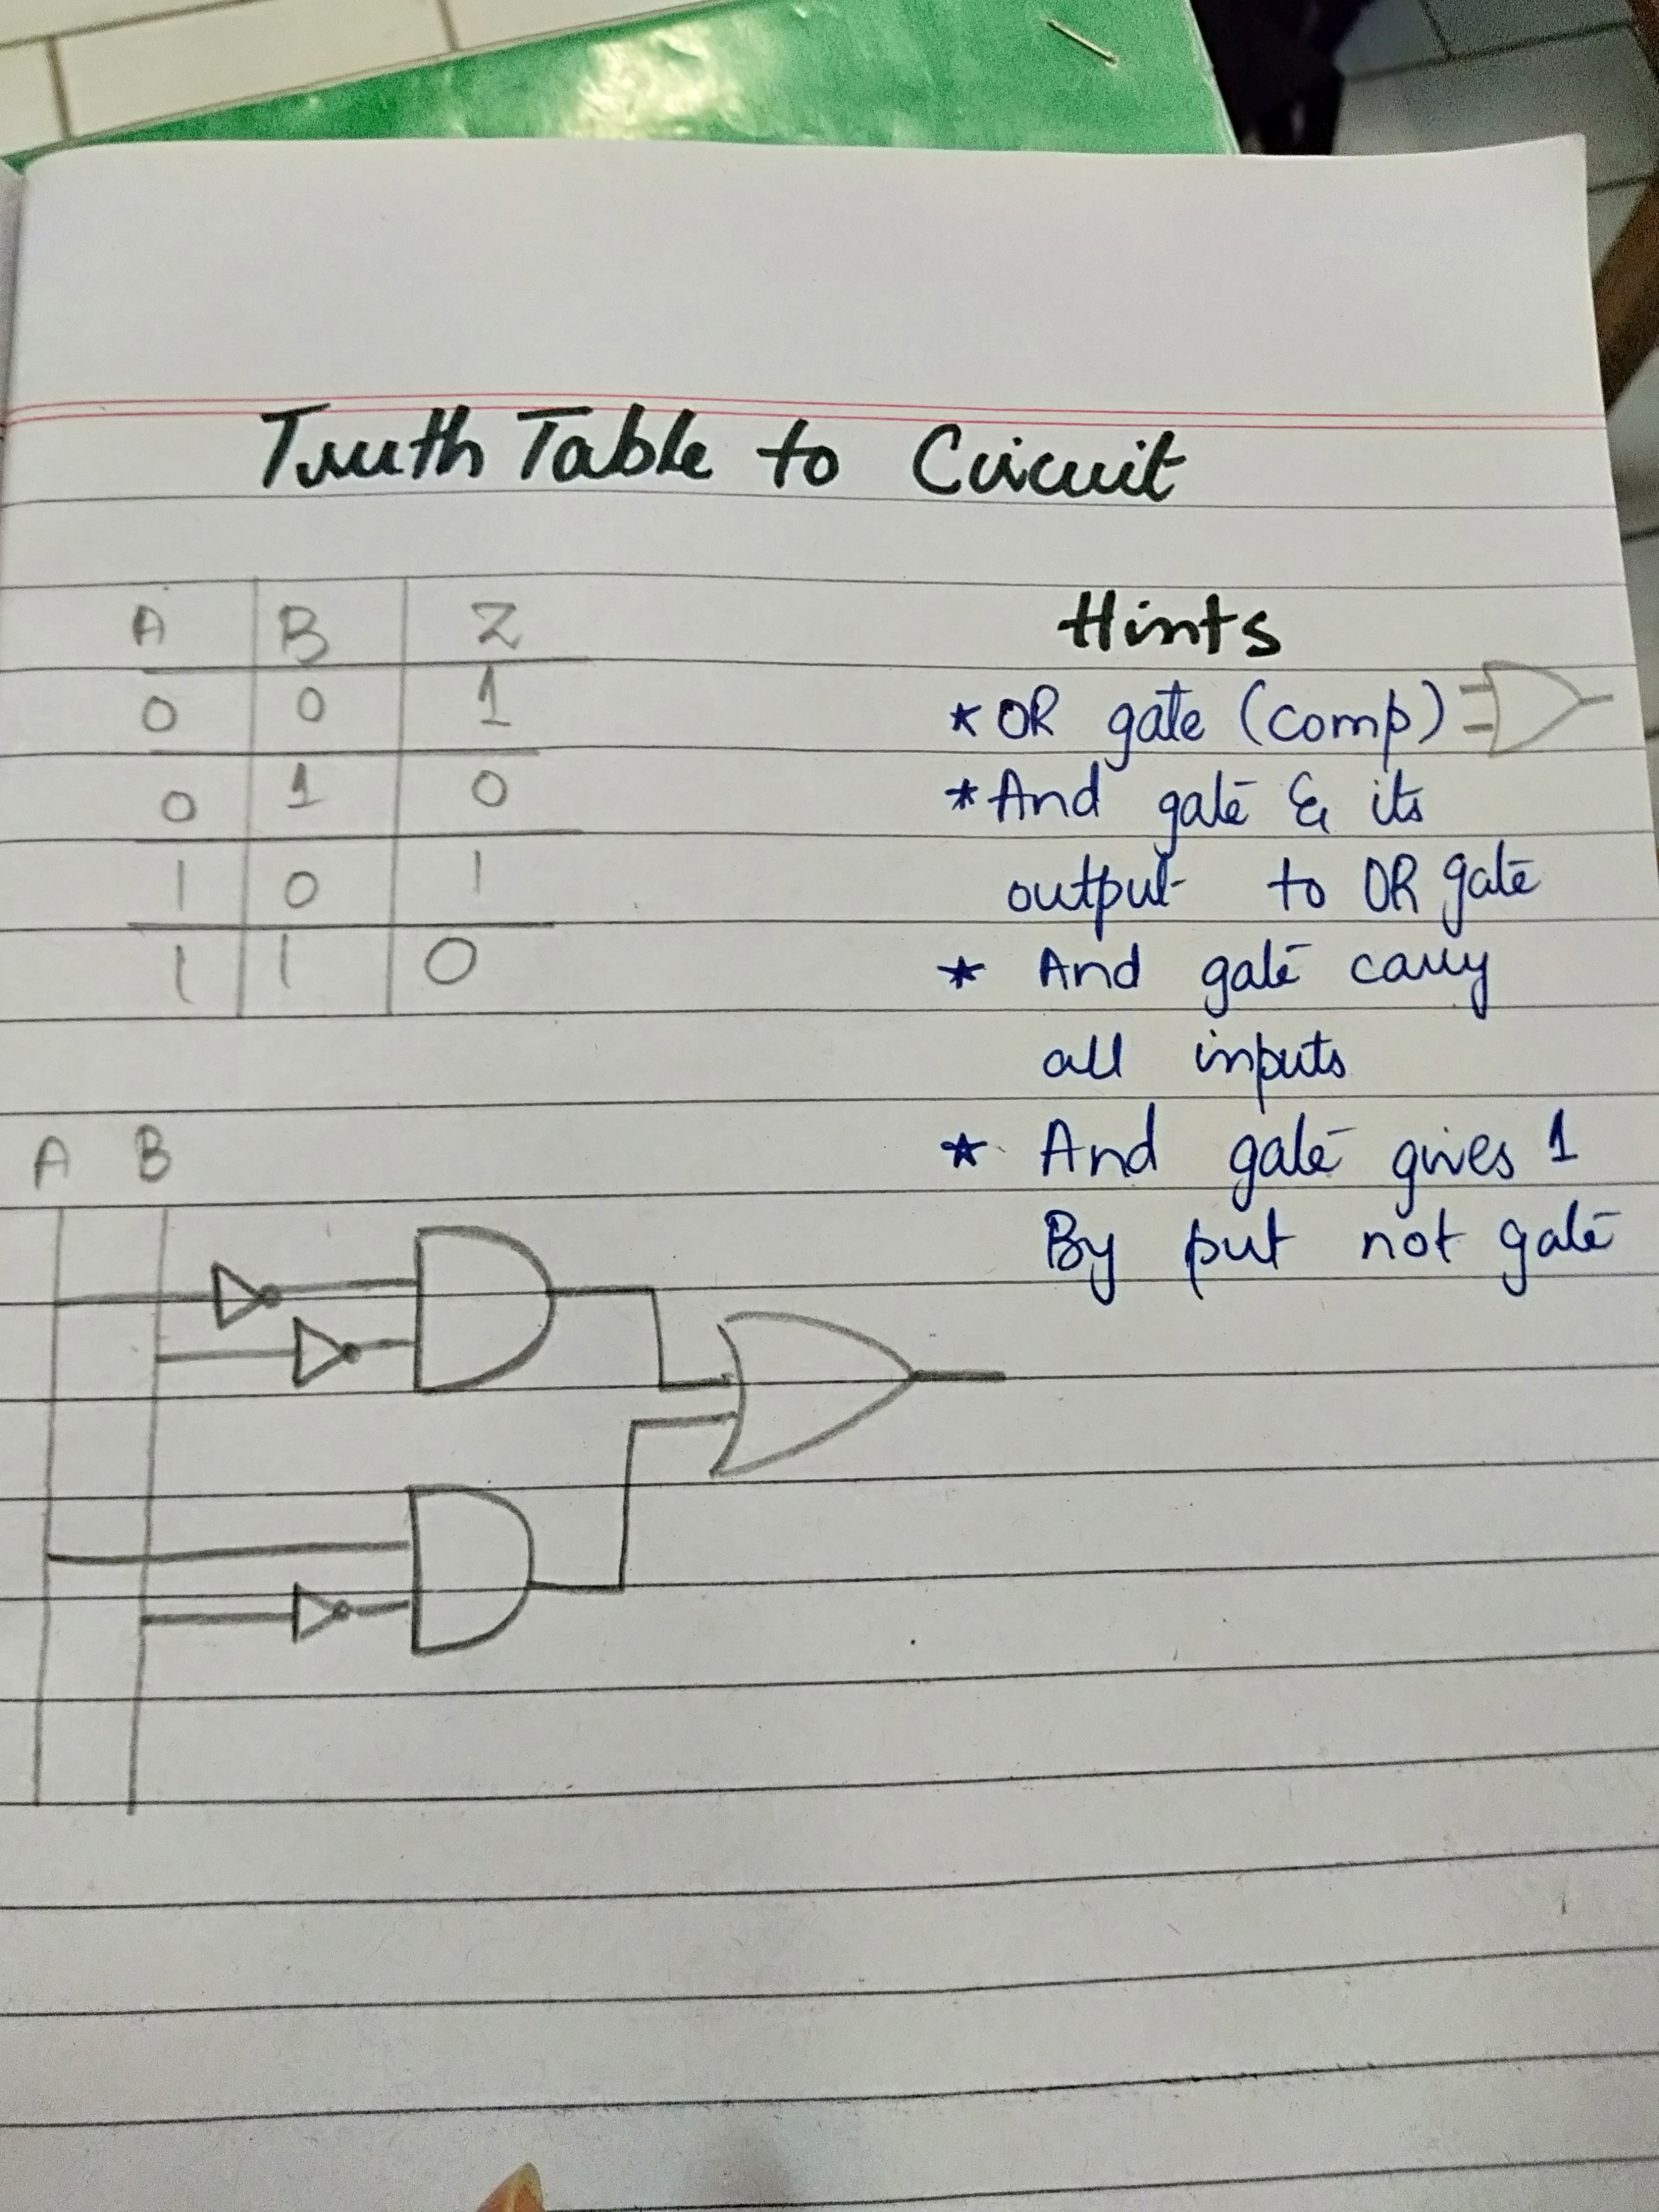 Truth Table to Circuit
A B Z
0 0 1
0 1 0
1 0 1
1 1 0
Hints
* OR gate (comp)
* And gate & its
output to OR gate
* And gate carry
all inputs
* And gate gives 1
By put not gate
A B